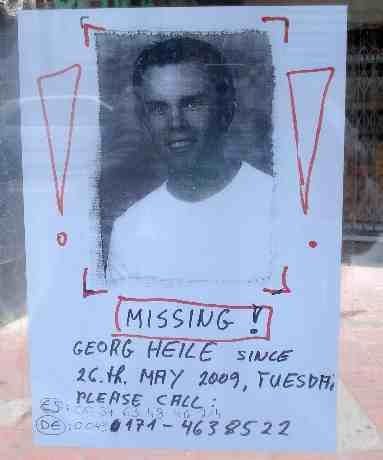 MISSING !
GEORG HEILE SINCE
26.th. MAY 2009, TUESDAY
PLEASE CALL:
ES:
DE: 0049 0171-4638522